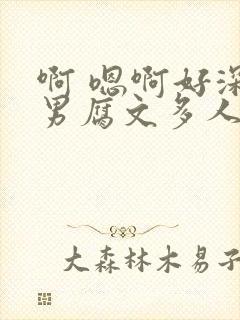 啊 嗯啊好深
男腐文多人
大森林木易子